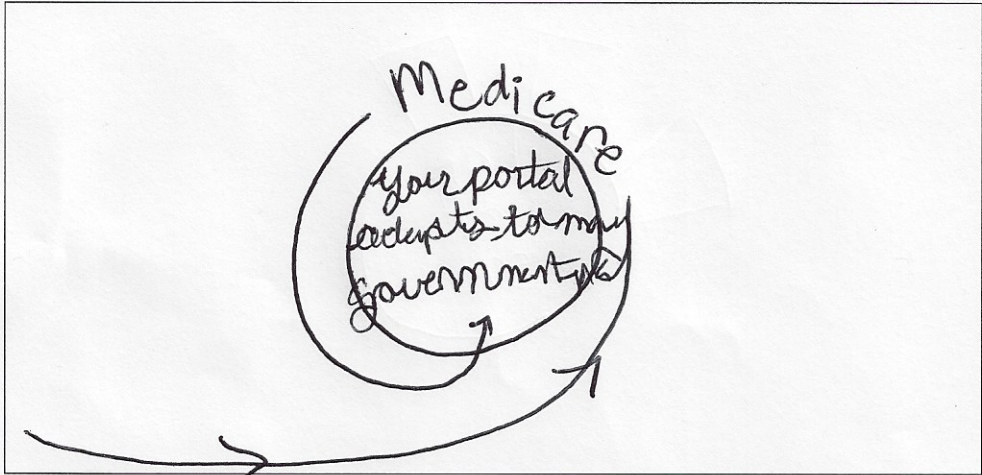 Medicare
Your portal
adapts to many
government